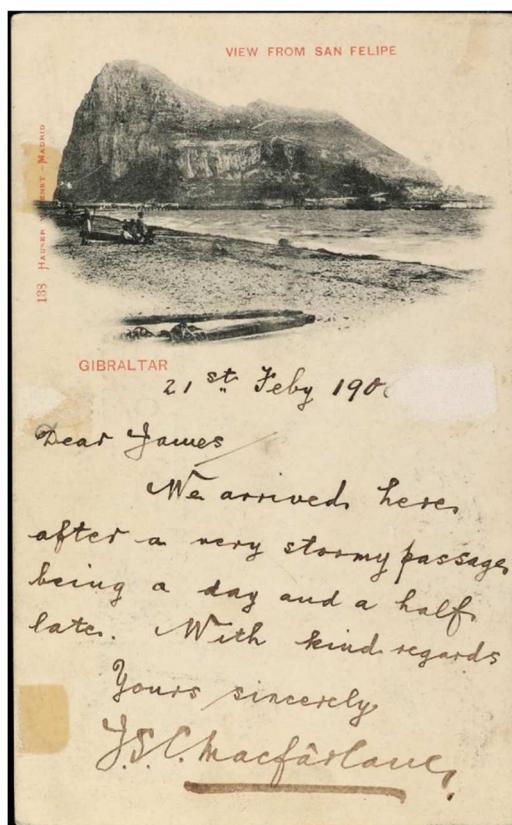 VIEW FROM SAN FELIPE
138 HAUSER MENET - MADRID
GIBRALTAR
21st Feby 190
Dear James
We arrived here
after a very stormy passage
being a day and a half
late. With kind regards
Yours sincerely
J.S.C. Macfarlane,